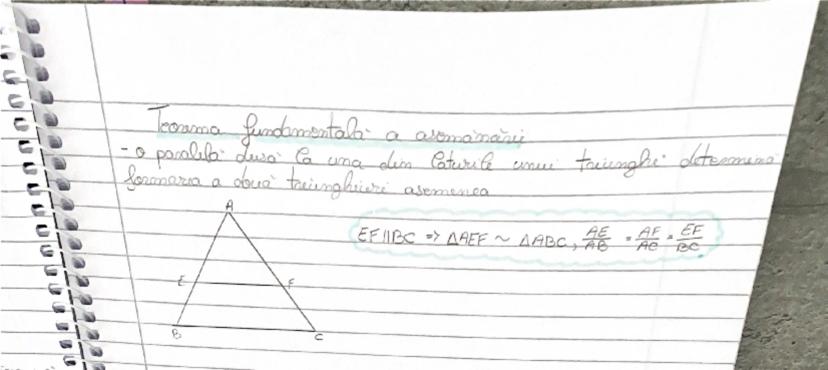 Teorema fundamentală a asemănării
- o paralelă dusă la una din laturile unui triunghi determină
formarea a două triunghiuri asemenea
A
EF||BC => ΔAEF ~ ΔABC, AE/AB = AF/AC = EF/BC
E F
B C